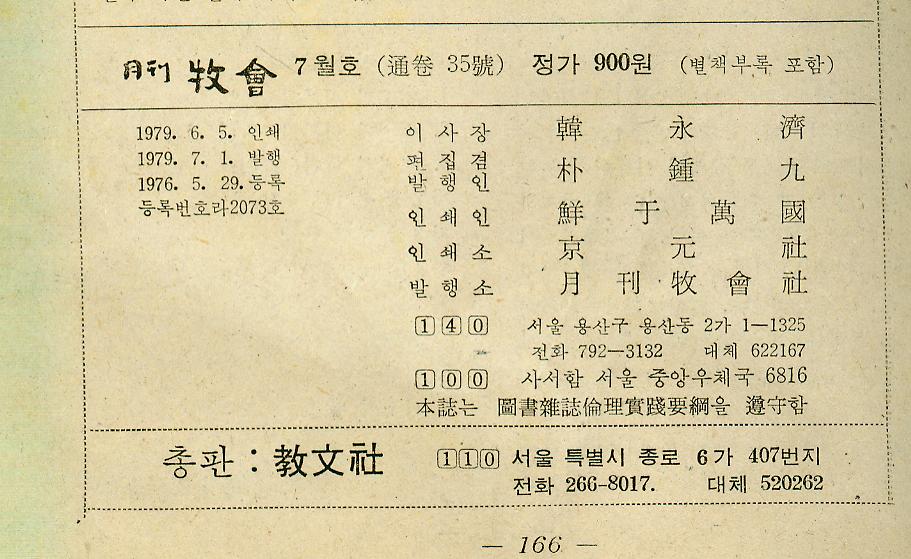 月刊 牧會 7월호 (通卷 35號) 정가 900원 (별책부록 포함)
1979. 6. 5. 인쇄
1979. 7. 1. 발행
1976. 5. 29. 등록
등록번호라2073호
이 사 장 韓 永 濟
편 집 겸
발 행 인 朴 鍾 九
인 쇄 인 鮮 于 萬 國
인 쇄 소 京 元 社
발 행 소 月 刊 牧 會 社
140 서울 용산구 용산동 2가 1—1325
전화 792—3132 대체 622167
100 사서함 서울 중앙우체국 6816
本誌는 圖書雜誌倫理實踐要綱을 遵守함
총판 : 教文社 110 서울 특별시 종로 6가 407번지
전화 266-8017. 대체 520262
— 166 —